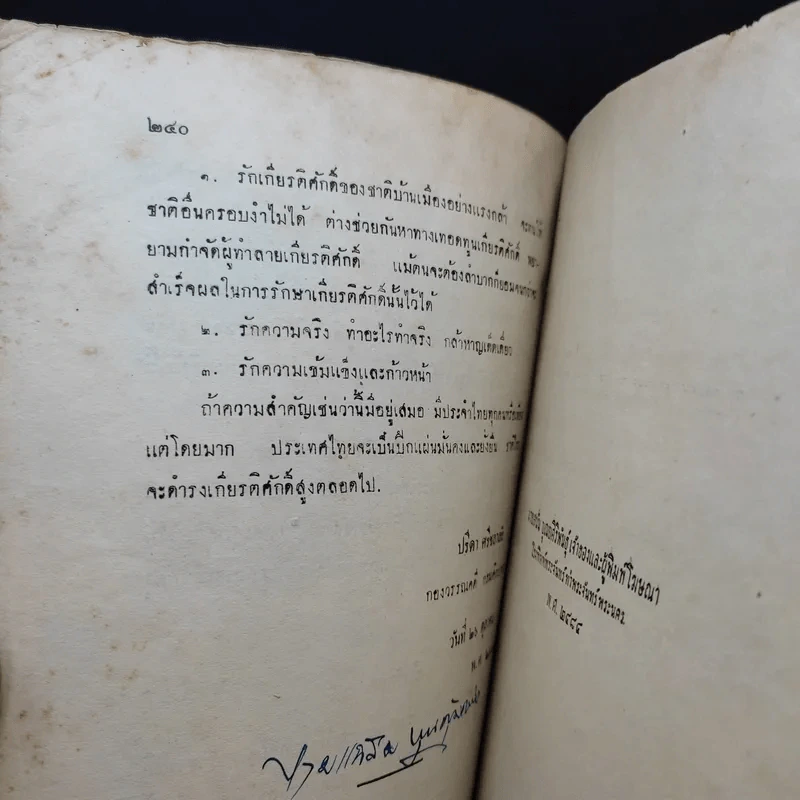 ๒๔๐
๑. รักเกียรติศักดิ์ของชาติบ้านเมืองอย่างแรงกล้า
ชาติอื่นครอบงำไม่ได้ ต่างช่วยกันหาทางเทอดทูนเกียรติศักดิ์ พยา-
ยามกำจัดผู้ทำลายเกียรติศักดิ์ แม้ตนจะต้องลำบากก็ยอม
สำเร็จผลในการรักษาเกียรติศักดิ์นั้นไว้ได้
๒. รักความจริง ทำอะไรทำจริง กล้าหาญเด็ดเดี่ยว
๓. รักความเข้มแข็งและก้าวหน้า
ถ้าความสำคัญเช่นว่านี้มีอยู่เสมอ มีประจำไทยทุกคน
แต่โดยมาก ประเทศไทยจะเป็นปึกแผ่นมั่นคงและยั่งยืน
จะดำรงเกียรติศักดิ์สูงตลอดไป.
ปรีดา
กองวรรณคดี
วันที่ ๒๖
พ.ศ.
เจ้าของและผู้พิมพ์โฆษณา
โรงพิมพ์พระจันทร์ ท่าพระจันทร์ พระนคร
พ.ศ. ๒๔๘๔